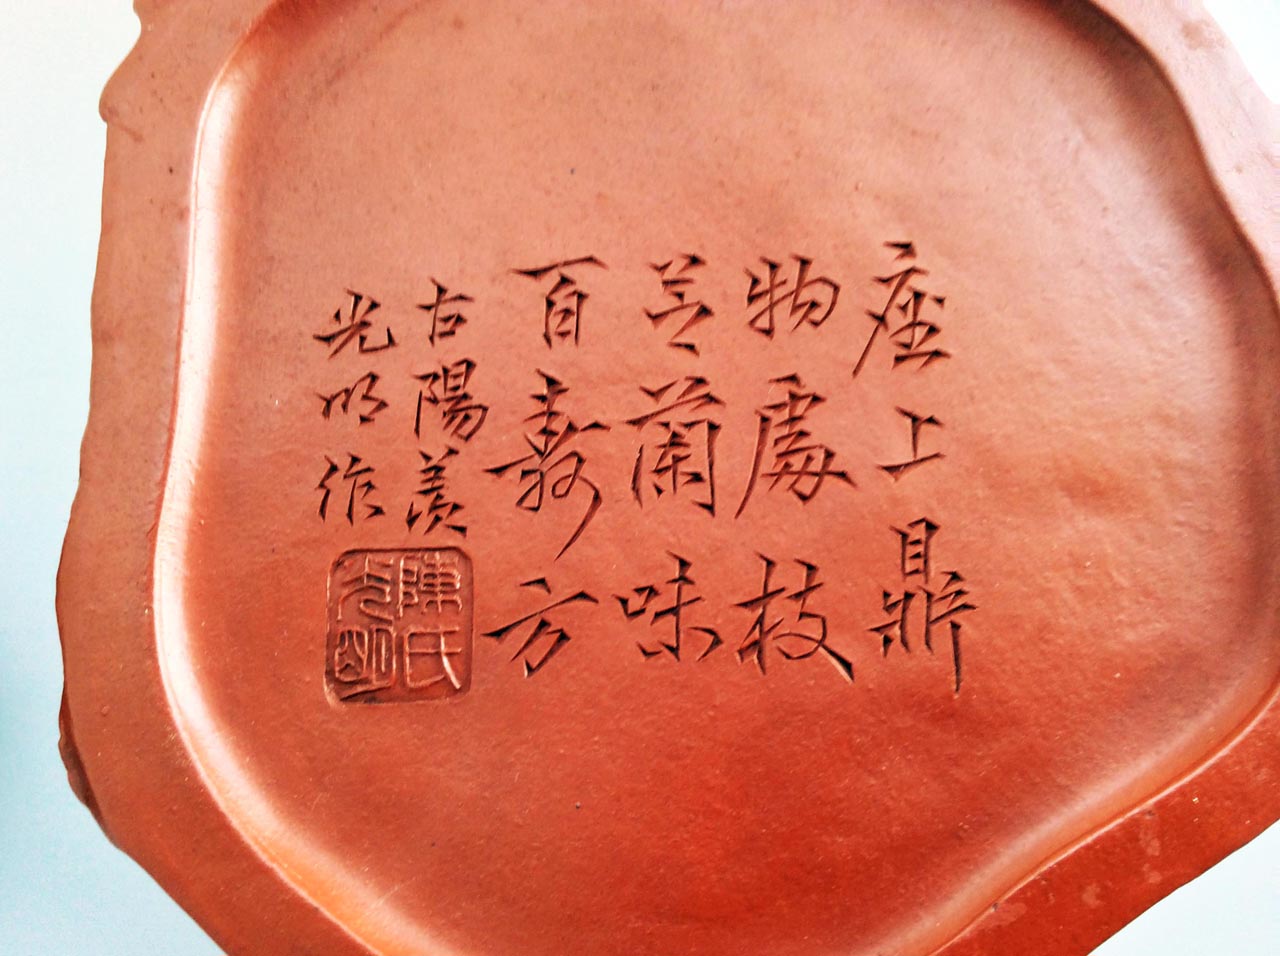 座上鼎
物處枝
芝蘭味
百壽方
古陽羨
光明作
陳氏
光明